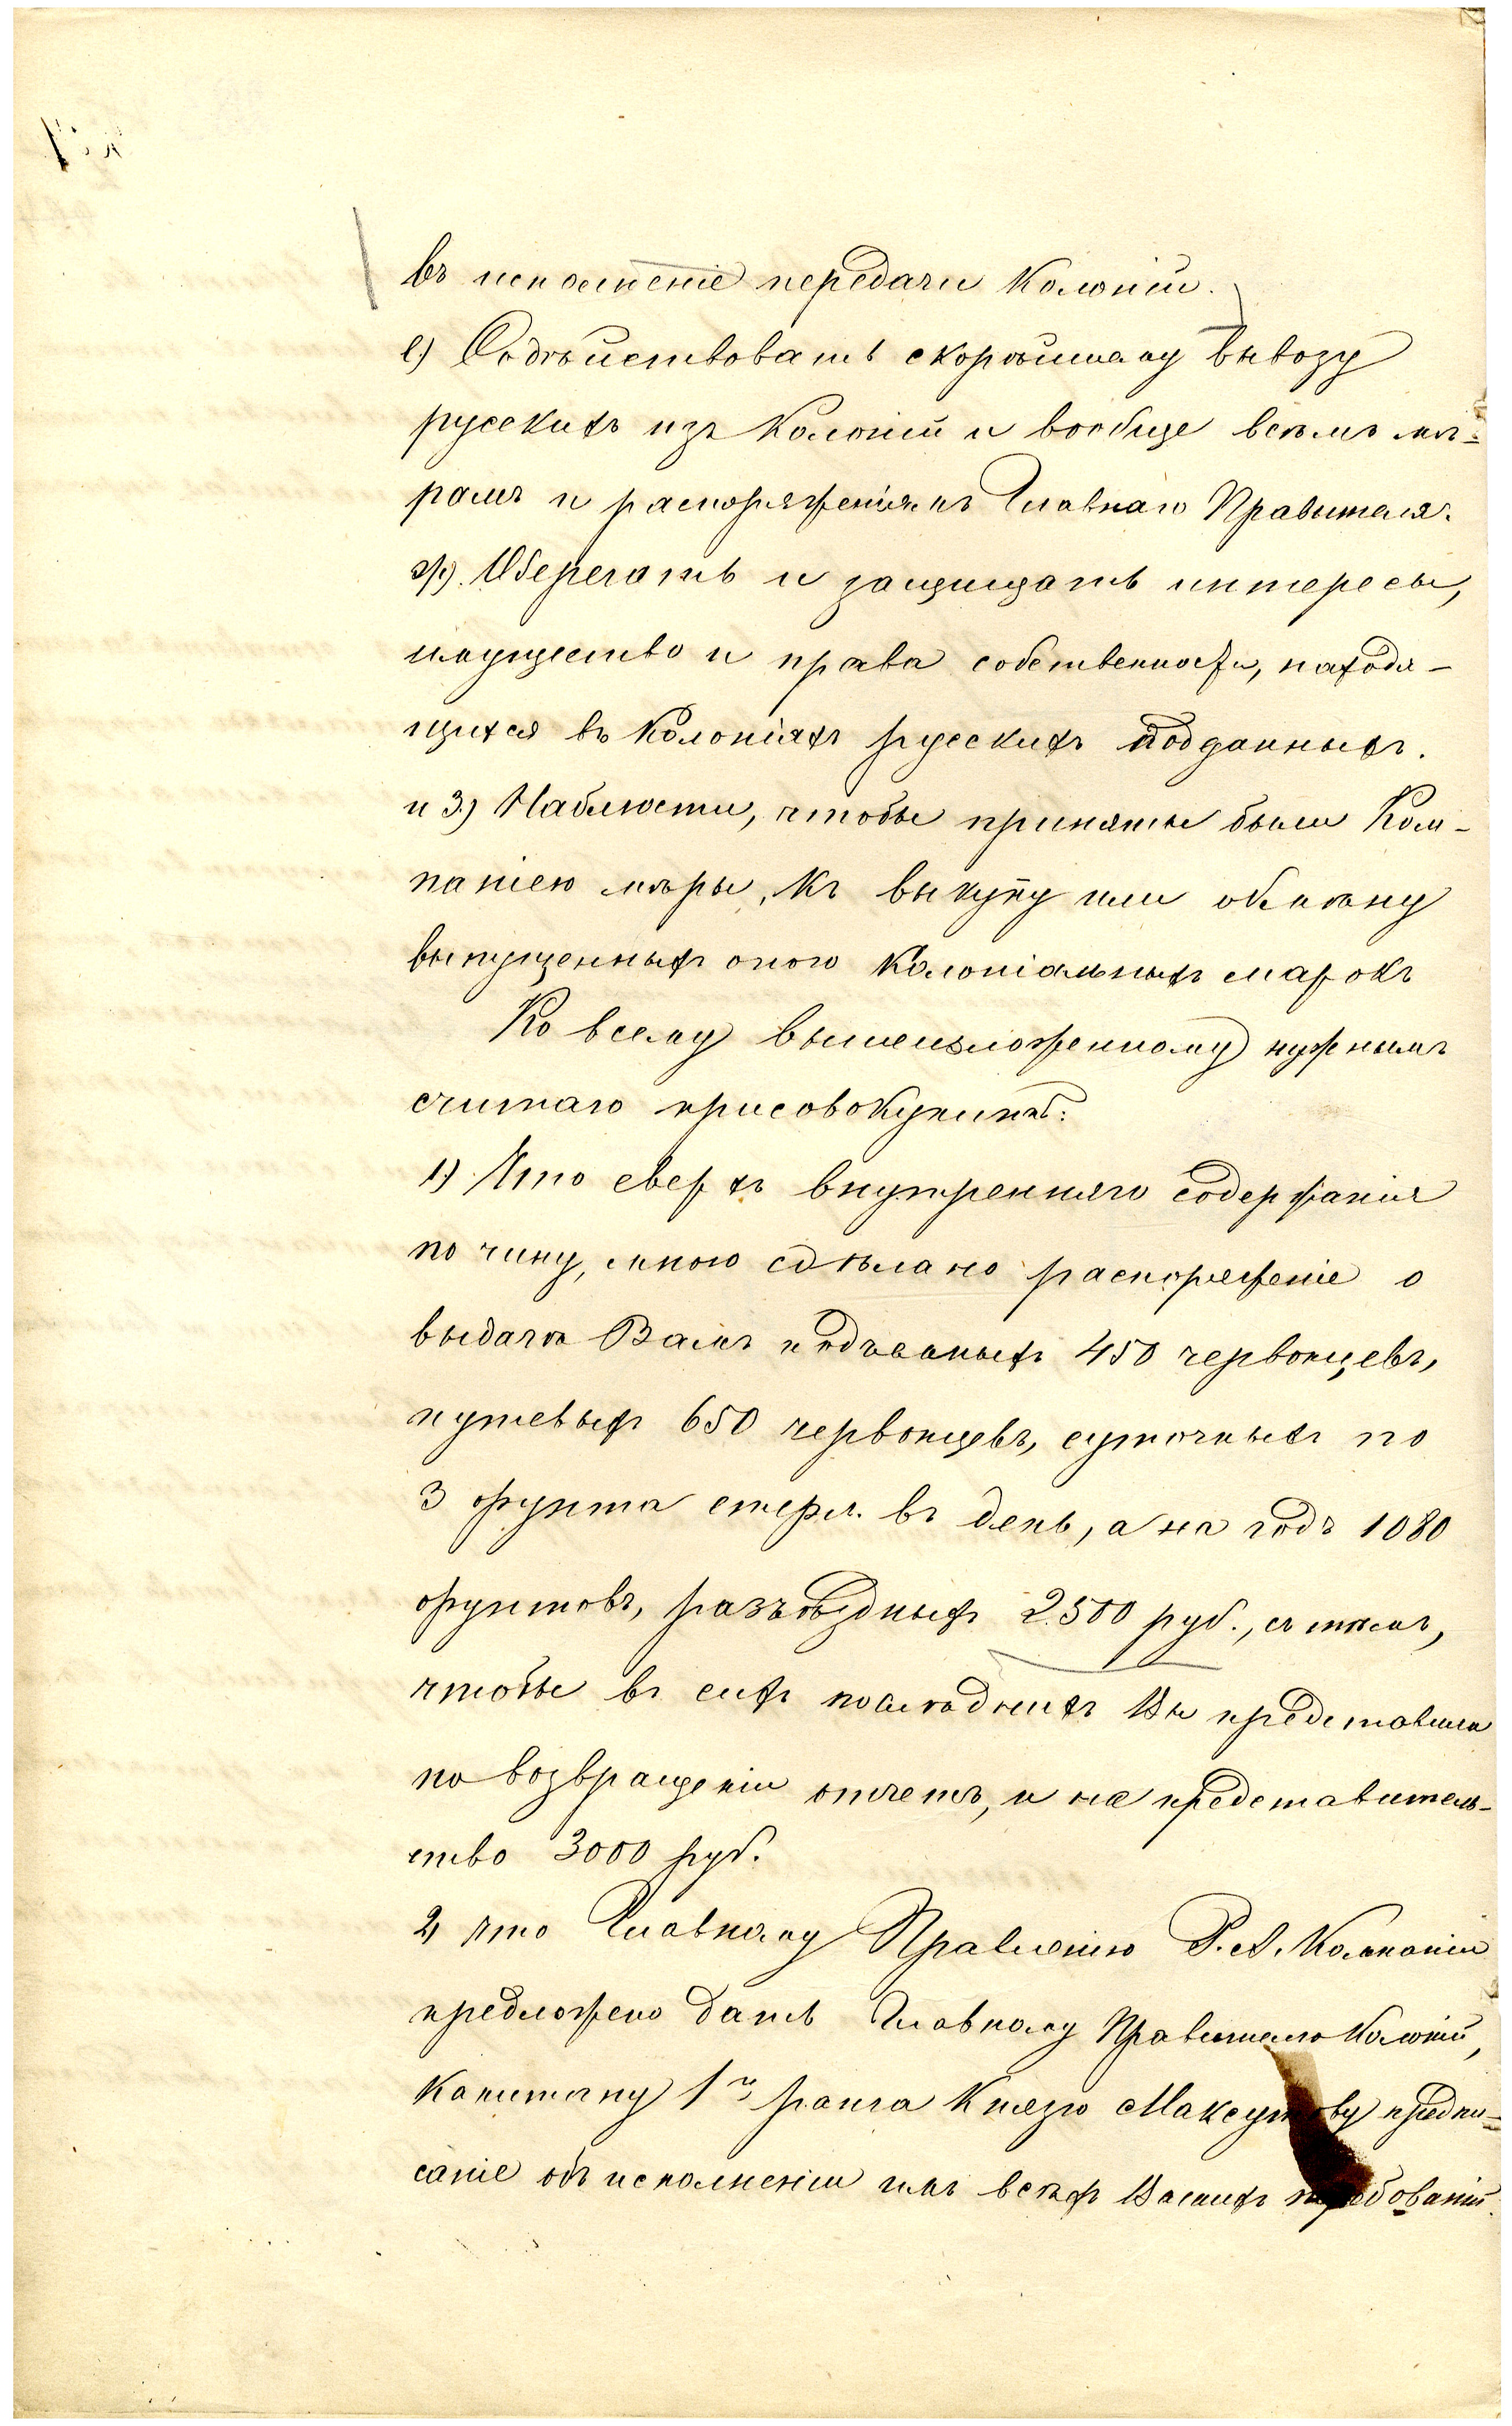 въ исполненіе передачи Колоній.
е) Содѣйствовать скорѣйшему вывозу
русскихъ изъ Колоній и вообще всѣмъ мѣ-
рамъ и распоряженіямъ Главнаго Правителя.
ж) Оберегать и защищать интересы,
имущество и права собственности, находя-
щихся въ Колоніяхъ русскихъ подданныхъ.
и з) Наблюсти, чтобы приняты были Ком-
паніею мѣры, къ выкупу или обмѣну
выпущенныхъ оною Колоніальныхъ марокъ
Ко всему вышеизложенному нужнымъ
считаю присовокупить:
1) Что сверхъ внутренняго содержанія
по чину, мною сдѣлано распоряженіе о
выдачѣ Вамъ подъемныхъ 450 червонцевъ,
путевыхъ 650 червонцевъ, суточныхъ по
3 фунта стерл. въ день, а на годъ 1080
фунтовъ, разъѣздныхъ 2.500 руб., съ тѣмъ,
чтобы въ сихъ послѣднихъ Вы представили
по возвращеніи отчетъ, и на представитель-
ство 3000 руб.
2) что Главному Правленію Р. А. Компаніи
предложено дать Главному Правителю Колоній,
Капитану 1го ранга Князю Максутову предпи-
саніе объ исполненіи имъ всѣхъ Вашихъ требованій.